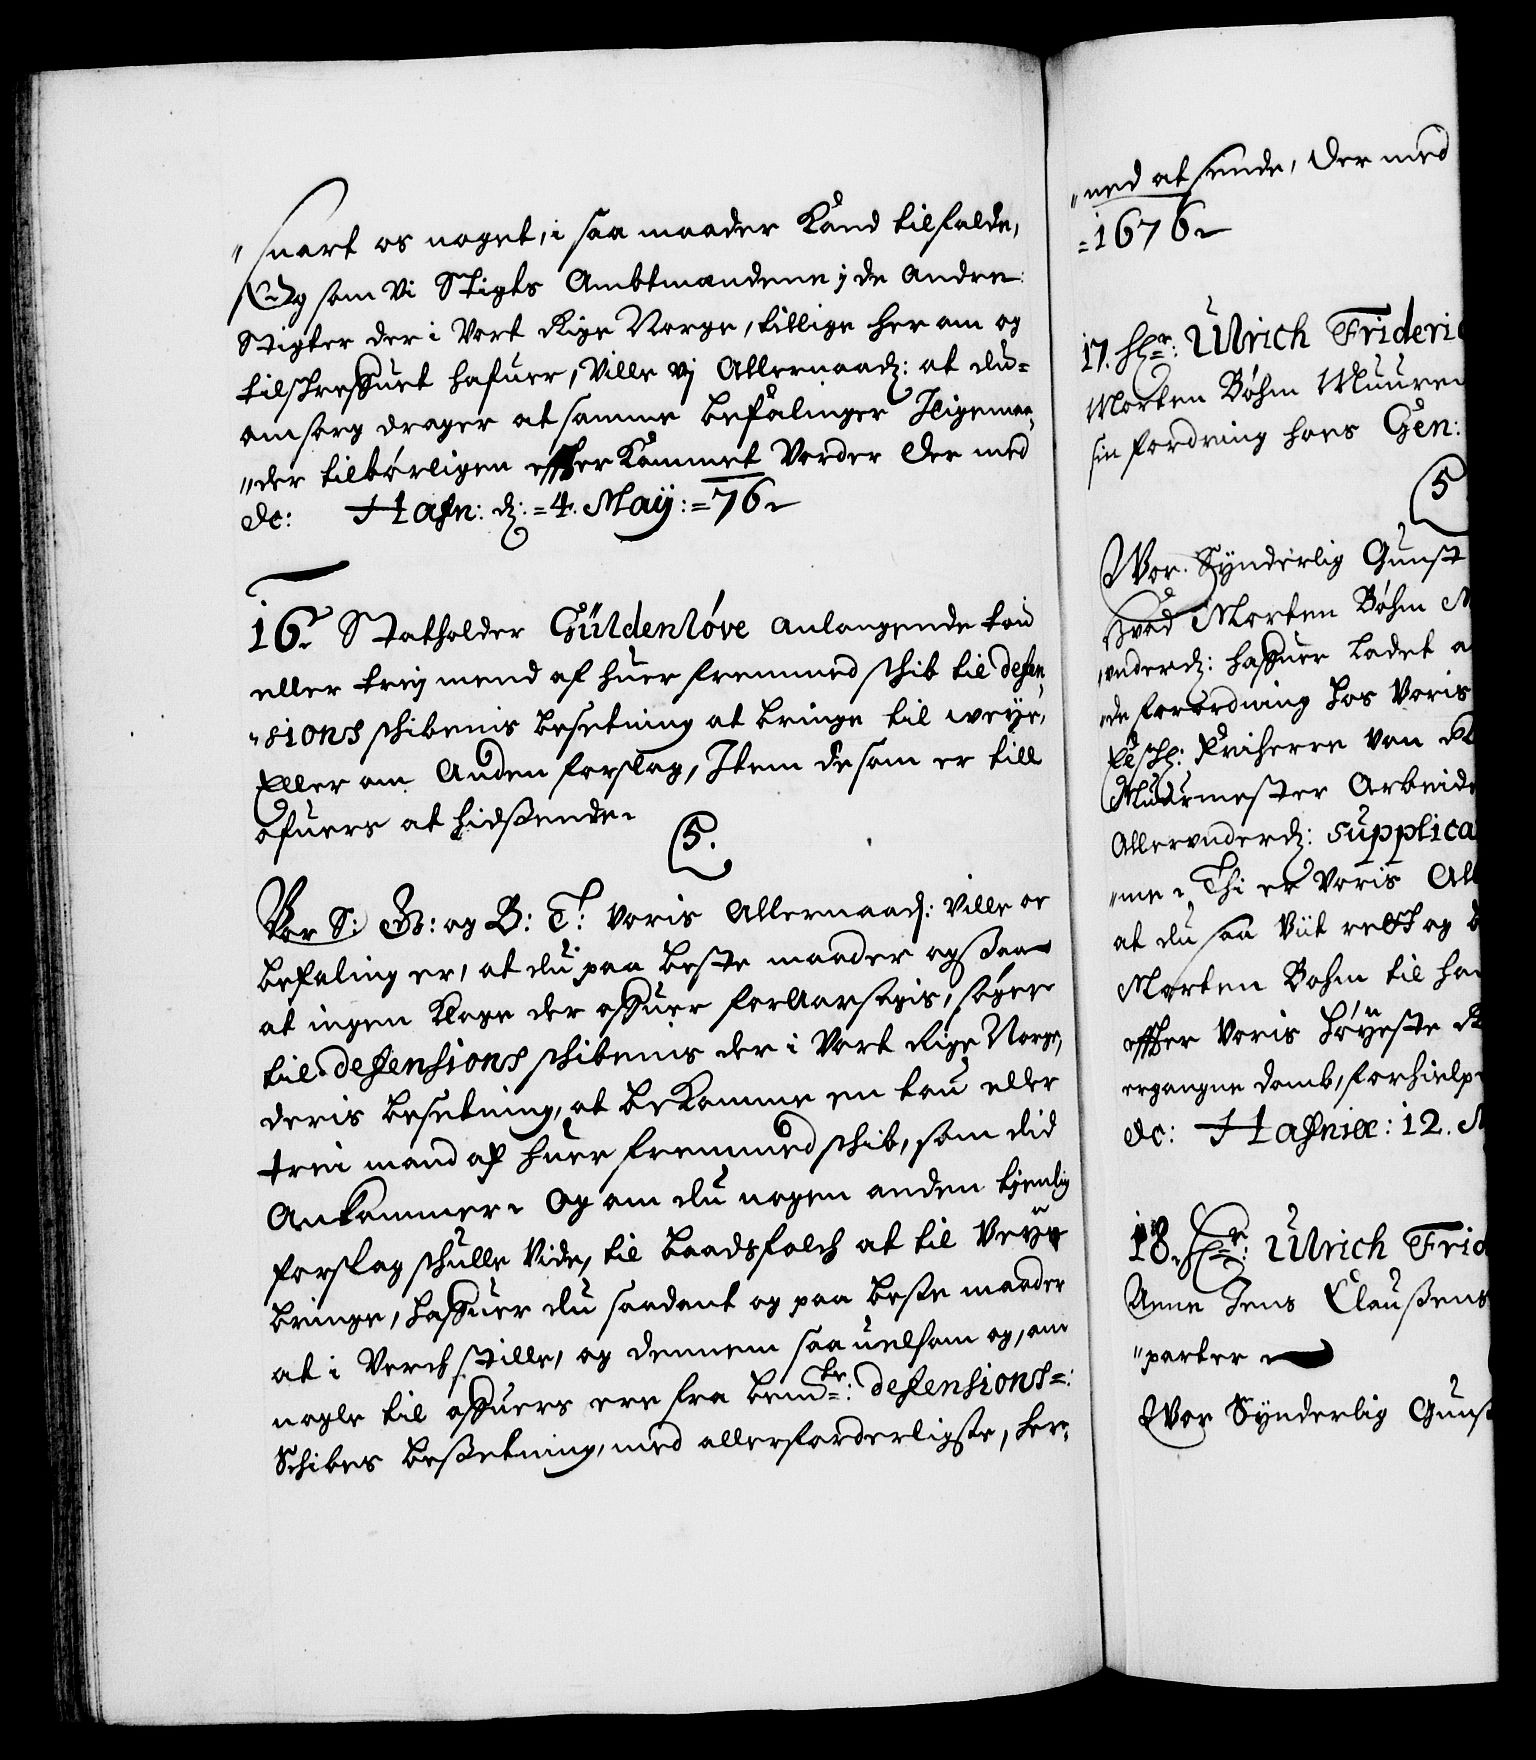 "snart os noget, i saa maader Kand tilfalde,
Og som Vi Stigts Ambtmændene j de andre
Stigter der i Vort Rige Norge, tillige her om og
tilskreffuet hafuer, Ville Vj Allernaadz: at du-
omsorg drager at samme befalinger Iligemaa
"der tilbørligen effterkommet Vorder Der med
&c: Hafn: dz: =4. Maÿ: =76
16. Statholder Güldenløve anlangende tou
eller treij mend af huer fremmed schib til defen
"sions schibenis besetning at bringe til weye,
Eller om Anden forslag, Item de som er till
ofuers at hidßende.
5.
Vor S: G: og B: T: Voris Allernaadz: Ville oc
befaling er, at du paa beste maader og ßaa
at ingen Klage der offuer foraarsagis, søger
til defensions schibenis der i Vort Rige Norge,
deris besetning, at beKomme en tou eller
trei mand af huer fremmed schib, som did
Ankommer. Og om du nogen anden tienlig
forslag schulle Vide, til baadsfolch at til Veye
bringe, haffuer du saadant og paa beste maader
at i Verch stille, og dennem saa uelsom og, om
nogle til offuers ere fra bemte: defensions=
Schibes beßetning, med allerforderligste, her
"ned at sende, der med
=1676
17. Hr: Ulrich Frideric
Morten Bøhm Muuren
sin fordring hoes Gen:
5
Wor Sÿnderlig Gunst
Hvad Morten Bøhm M
underdz: haffuer ladet a
"de forordning hos Voris
Friherre von
Muurmester Arbeide
Allerunderdz: supplica
"me. Thi er Voris All
at du saa Viit rett og b
Morten Bøhm til ha
effter Voris høyeste R
ergangne domb, forhielp
&c: Hafniæ: 12. M
18. Hr: Ulrich Frid
Anne Jens Claußens
"parter
Wor Sÿnderlig Gunst